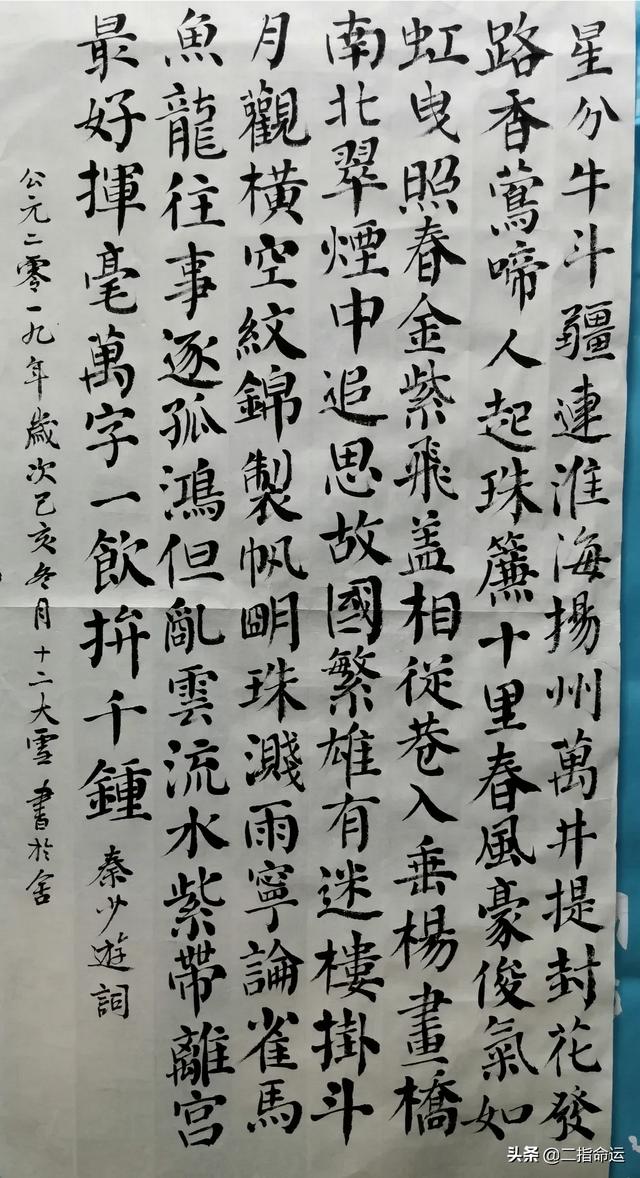 星分牛斗疆連淮海揚州萬井提封花發
路香鶯啼人起珠簾十里春風豪俊氣如
虹曳照春金紫飛蓋相從巷入垂楊畫橋
南北翠煙中追思故國繁雄有迷樓掛斗
月觀橫空紋錦製帆明珠濺雨寧論雀馬
魚龍往事逐孤鴻但亂雲流水紫帶離宮
最好揮毫萬字一飲拚千鍾
秦少遊詞
公元二零一九年歲次己亥冬月十二大雪書於舍
头条 @二指命运